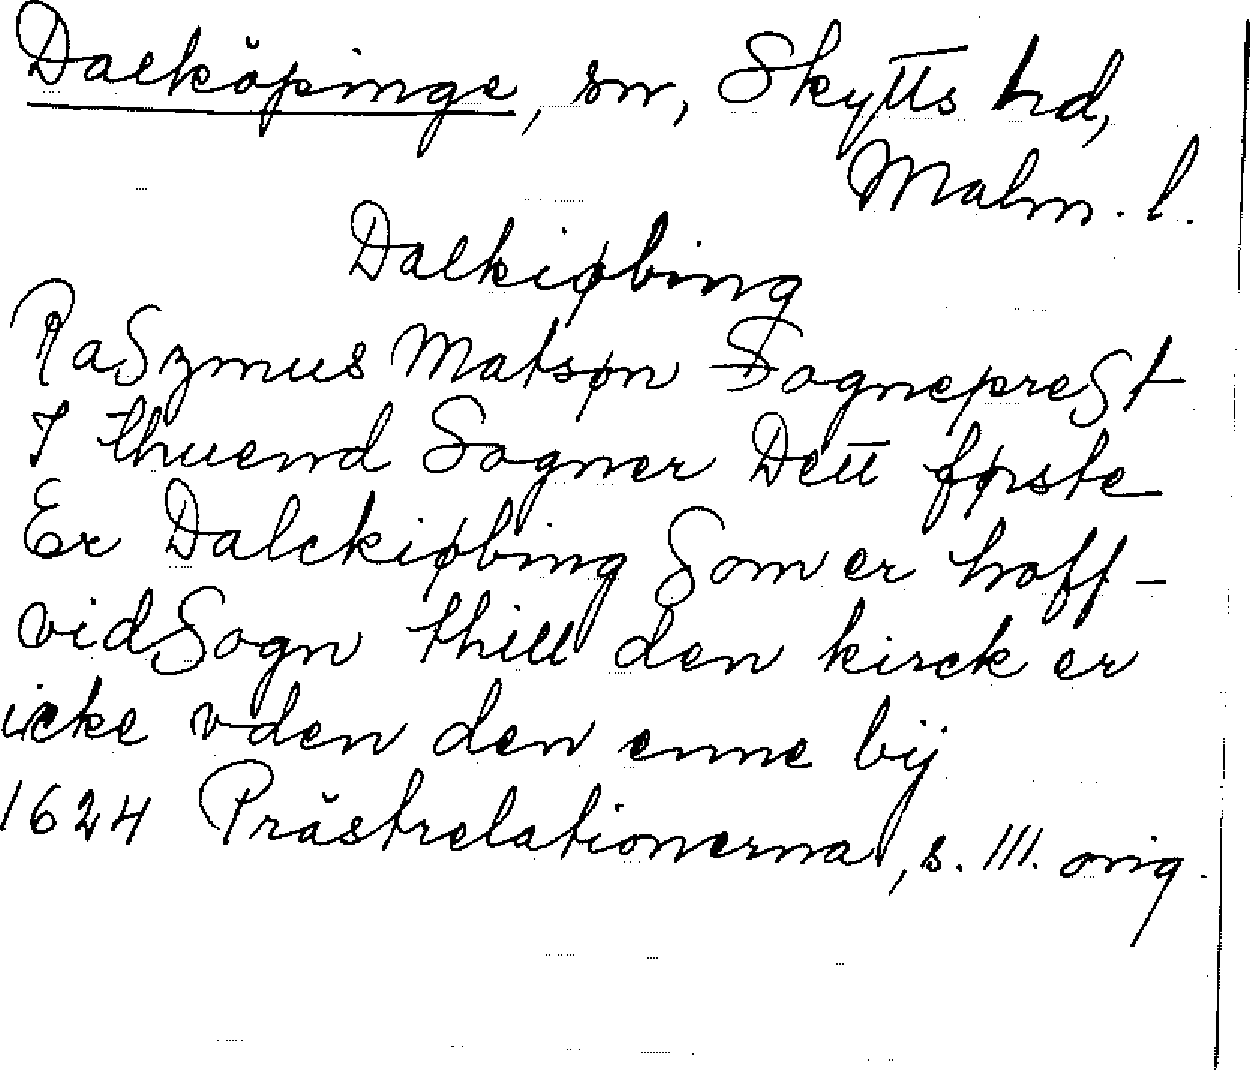 Dalköpinge, sn, Skytts hd,
Malm. l.
Dalkiøbing
RaSzmus Matsøn SognepreSt
I thuend Sogner Dett første
Er Dalckiøbing Som er hoff-
vidSogn thill den kirck er
icke vden den enne bij
1624 Prästrelationerna, s. 111. orig.